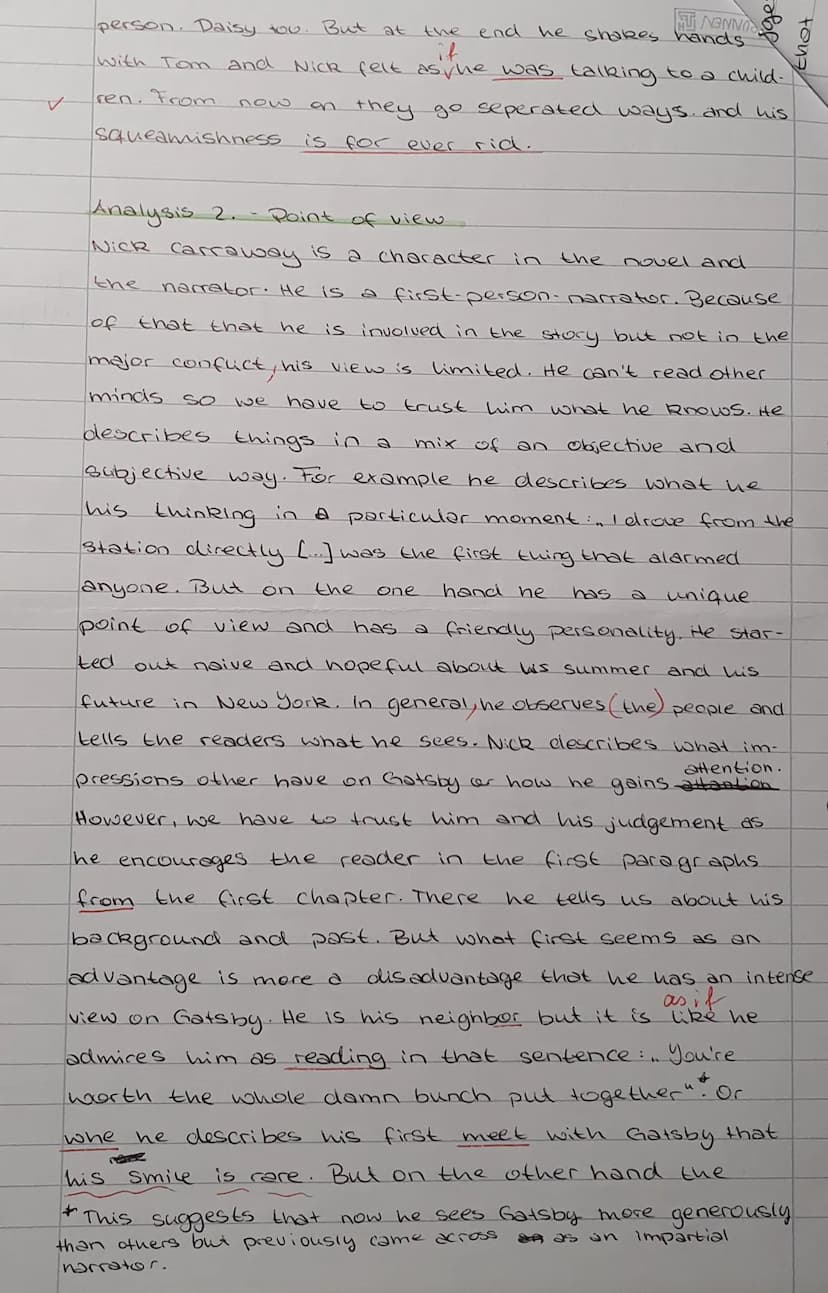 person. Daisy too. But at the end he shakes hands
with Tom and Nick felt as if he was talking to a child-
ren. From now on they go seperated ways. and his
squeamishness is for ever rid.
Analysis 2. - Point of view
Nick Carraway is a character in the novel and
the narrator. He is a first-person-narrator. Because
of that that he is involved in the story but not in the
major conflict, his view is limited. He can't read other
minds so we have to trust him what he knows. He
describes things in a mix of an objective and
subjective way. For example he describes what he
his thinking in a particular moment: „I drove from the
station directly [...] was the first thing that alarmed
anyone. But on the one hand he has a unique
point of view and has a friendly personality. He star-
ted out naive and hopeful about his summer and his
future in New York. In general, he observes (the) people and
tells the readers what he sees. Nick describes what im-
pressions other have on Gatsby or how he gains attention.
However, we have to trust him and his judgement as
he encourages the reader in the first paragraphs
from the first chapter. There he tells us about his
background and past. But what first seems as an
advantage is more a disadvantage that he has an intense
view on Gatsby. He is his neighbor but it is like as if he
admires him as reading in that sentence: „You're
worth the whole damn bunch put together"*. Or
whe he describes his first meet with Gatsby that
his smile is rare. But on the other hand the
* This suggests that now he sees Gatsby more generously
than others but previously came across as an impartial
narrator.